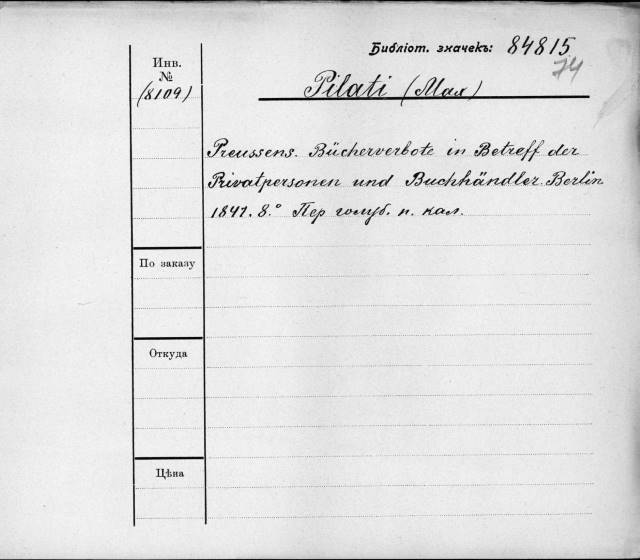 Библіот. значекъ: 84815
74
Инв.
№
(8109)
Pilati (Max)
Preussens. Bücherverbote in Betreff der
Privatpersonen und Buchhändler. Berlin.
1841. 8.° Пер голуб. п. кал.
По заказу
Откуда
Цѣна